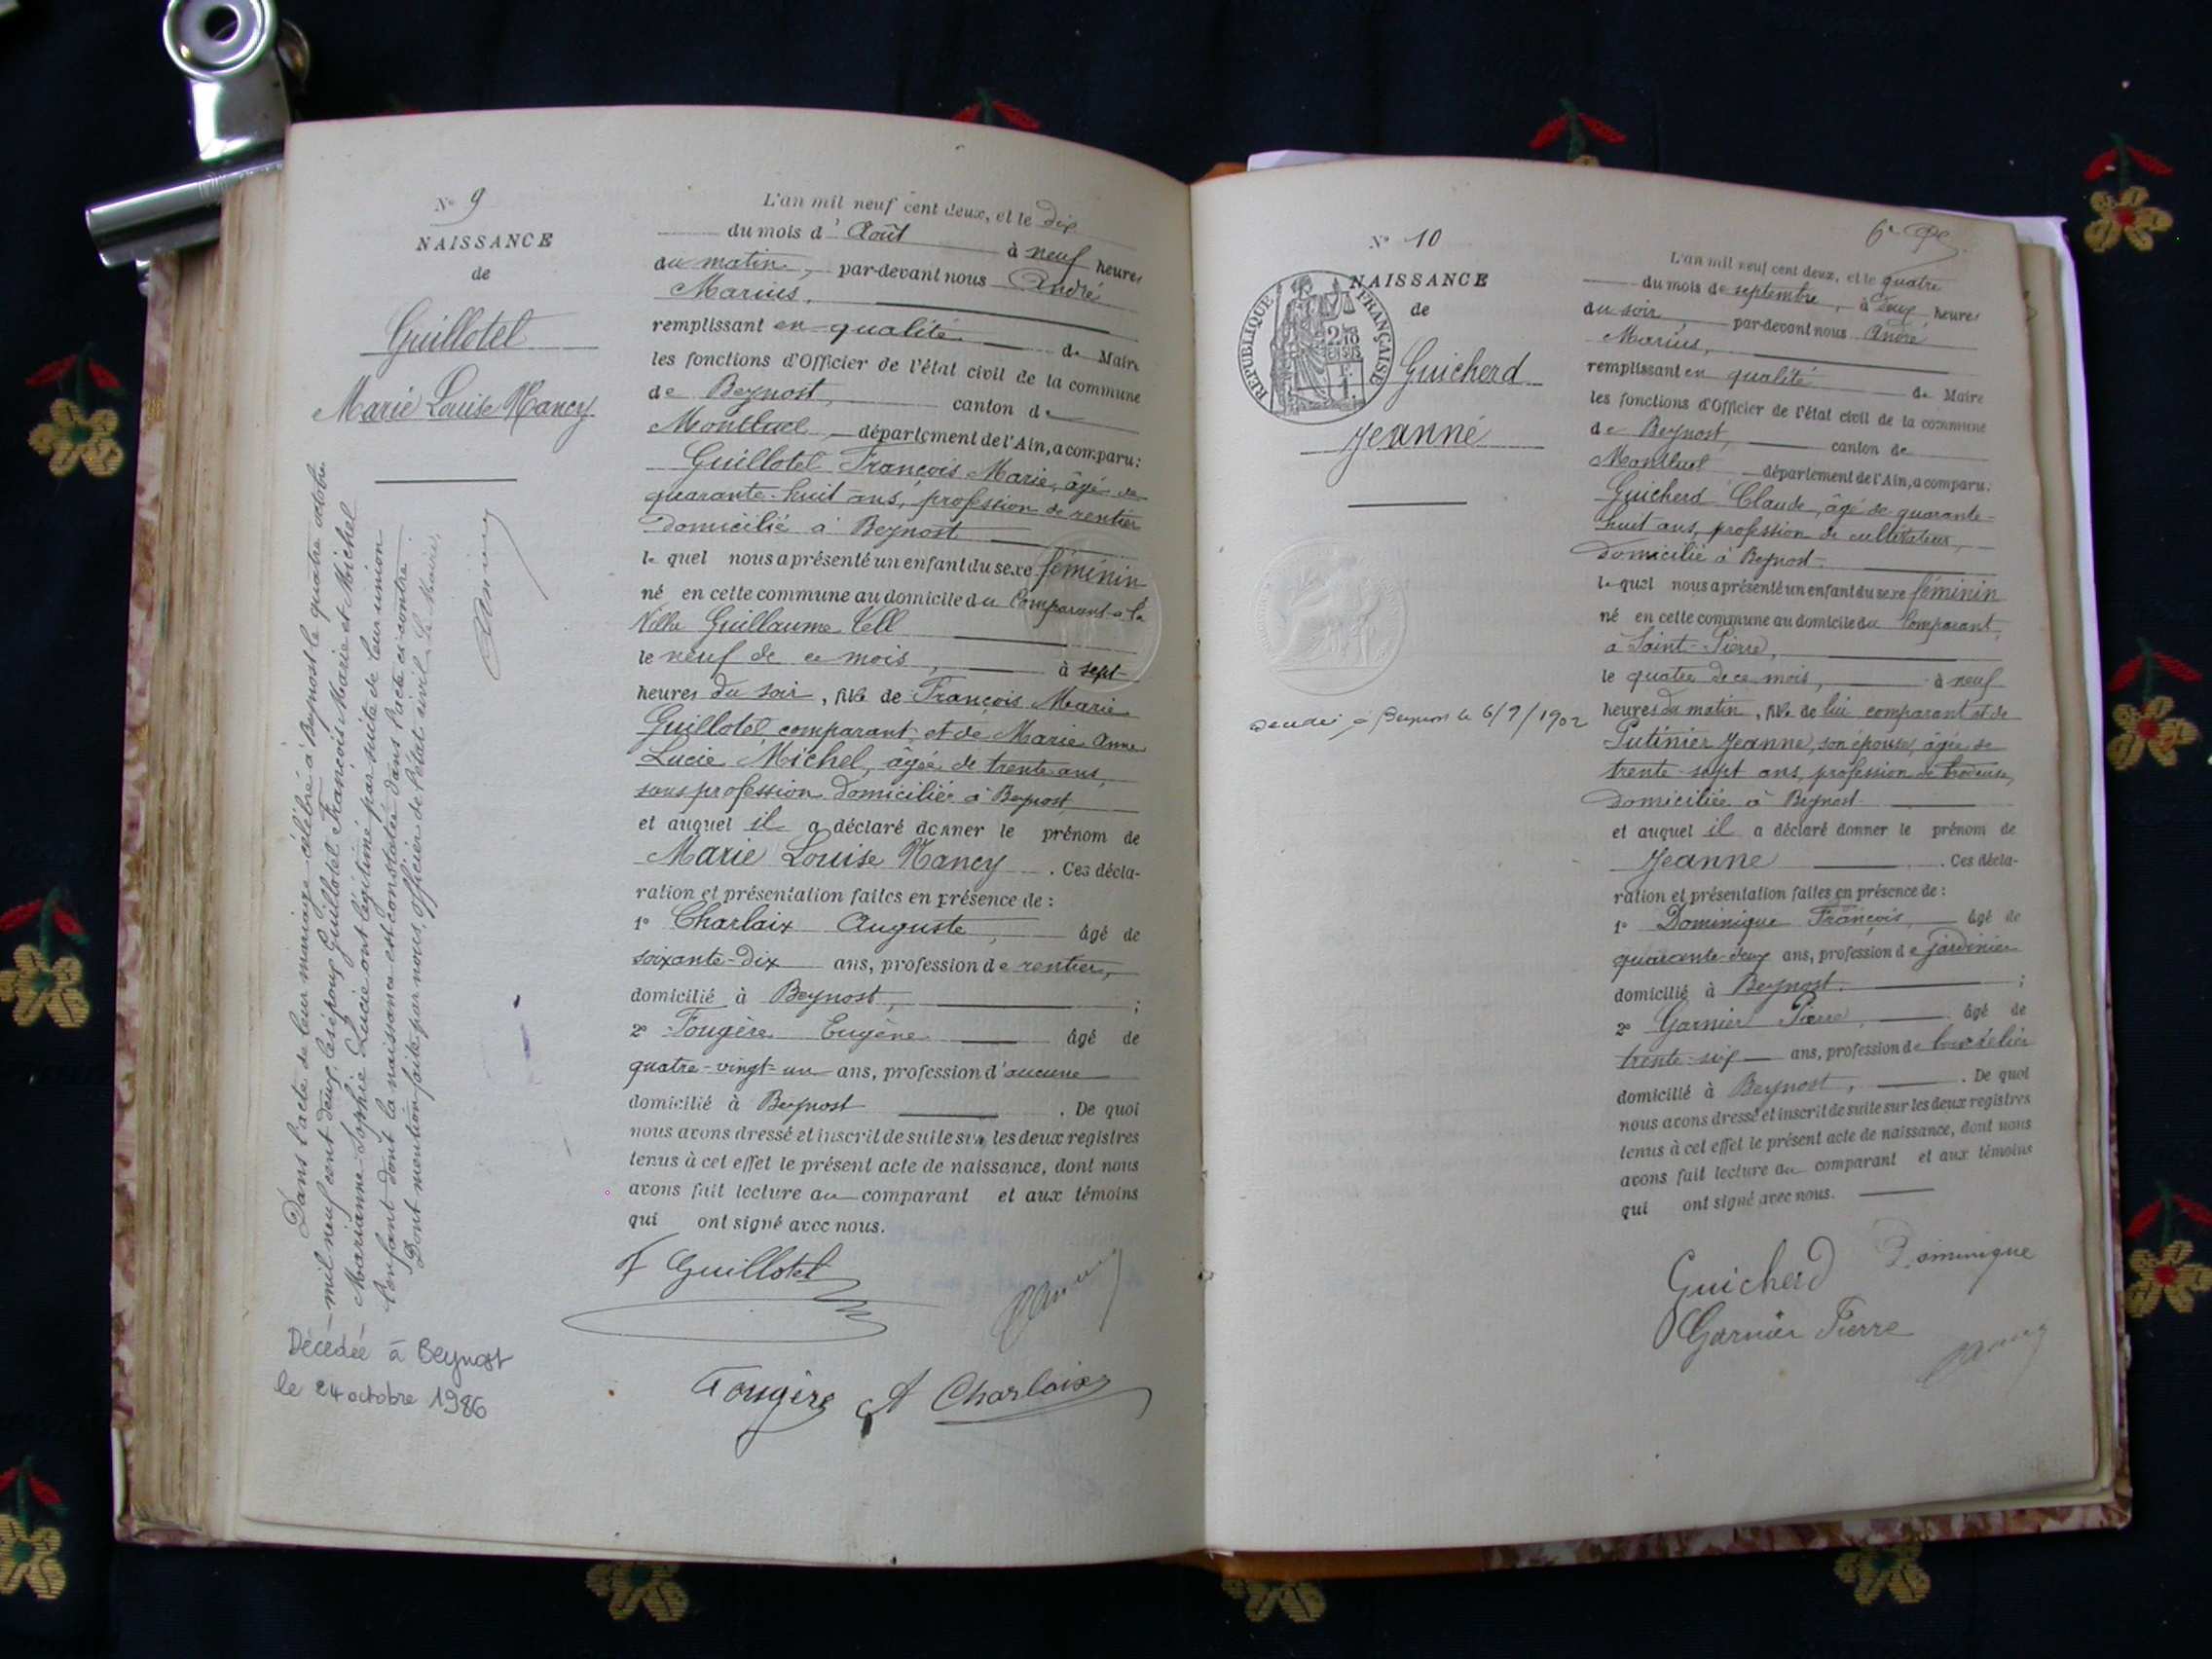 N° 9
NAISSANCE
de
Guillotel
Marie Louise Nancy
Dans l'acte de leur mariage célébré à Beynost le quatre octobre
mil neuf cent deux, les époux Guillotel François Marie et Michel
Marianne Sophie Lucie ont légitimé par suite de leur union
l'enfant dont la naissance est constatée dans l'acte ci-contre.
Dont mention faite par nous, officier de l'état civil. Le Maire,
Décédée à Beynost
le 24 octobre 1986
L'an mil neuf cent deux, et le dix
du mois d' Août à neuf heures
du matin, par-devant nous André
Marius,
remplissant en qualité de Maire
les fonctions d'Officier de l'état civil de la commune
de Beynost, canton de
Montluel, département de l'Ain, a comparu:
Guillotel François Marie, âgé de
quarante-huit ans, profession de rentier
domicilié à Beynost
le quel nous a présenté un enfant du sexe féminin
né en cette commune au domicile du comparant à la
Villa Guillaume Tell
le neuf de ce mois, à sept
heures du soir, fille de François Marie
Guillotel comparant, et de Marie Anne
Lucie Michel, âgée de trente ans,
sans profession domiciliée à Beynost
et auquel il a déclaré donner le prénom de
Marie Louise Nancy. Ces décla-
ration et présentation faites en présence de :
1° Charlaix Auguste, âgé de
soixante-dix ans, profession de rentier,
domicilié à Beynost, ;
2° Fougère Eugène âgé de
quatre-vingt-un ans, profession d'aucune
domicilié à Beynost. De quoi
nous avons dressé et inscrit de suite sur les deux registres
tenus à cet effet le présent acte de naissance, dont nous
avons fait lecture au comparant et aux témoins
qui ont signé avec nous.
F Guillotel
Fougère A Charlaix
N° 10
NAISSANCE
de
RÉPUBLIQUE FRANÇAISE
2/10 EN SUS
Guicherd
Jeanne
décédée à Beynost le 6/9/1902
L'an mil neuf cent deux, et le quatre
du mois de septembre, à deux heures
du soir, par-devant nous André
Marius,
remplissant en qualité de Maire
les fonctions d'Officier de l'état civil de la commune
de Beynost, canton de
Montluel département de l'Ain, a comparu:
Guicherd Claude, âgé de quarante-
huit ans, profession de cultivateur,
domicilié à Beynost
le quel nous a présenté un enfant du sexe féminin
né en cette commune au domicile du comparant,
à Saint-Pierre,
le quatre de ce mois, à neuf
heures du matin, fille de lui comparant et de
Putinier Jeanne, son épouse, âgée de
trente-sept ans, profession de brodeuse,
domiciliée à Beynost
et auquel il a déclaré donner le prénom de
Jeanne. Ces décla-
ration et présentation faites en présence de :
1° Dominique François, âgé de
quarante-deux ans, profession de jardinier
domicilié à Beynost. ;
2° Garnier Pierre, âgé de
trente-six ans, profession de bourrelier
domicilié à Beynost, . De quoi
nous avons dressé et inscrit de suite sur les deux registres
tenus à cet effet le présent acte de naissance, dont nous
avons fait lecture au comparant et aux témoins
qui ont signé avec nous.
Guicherd Dominique
Garnier Pierre